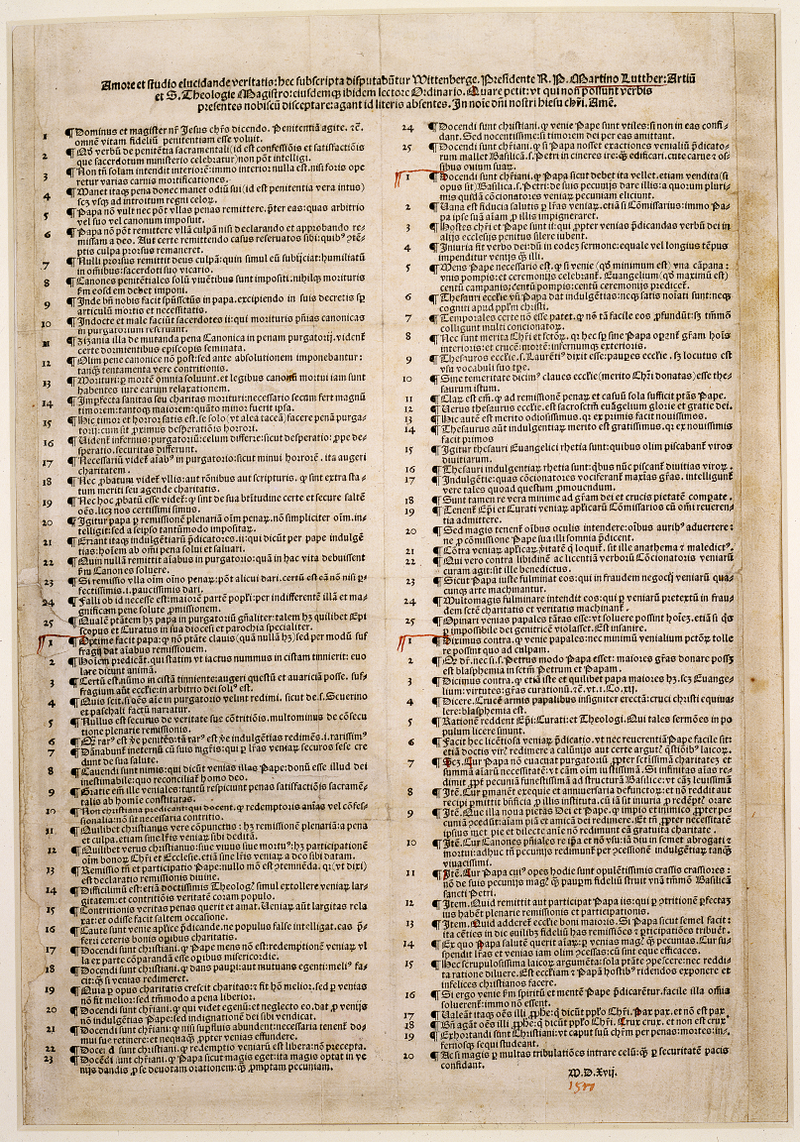 Amore et studio elucidande veritatis: hec subscripta disputabūtur Wittenberge. Presidente R. P. Martino Lutther: Artiū
et S. Theologie Magistro: eiusdemq; ibidem lectore Ordinario. Quare petit: vt qui non possunt verbis
presentes nobiscū disceptare: agant id literis absentes. In noīe dn̄i nostri hiesu chr̄i. Amē.
1 ¶ Dominus et magister nr̄ Jesus chr̄s dicendo. Penitentiā agite. ꝛc̄.
omnē vitam fideliū penitentiam esse voluit.
2 ¶ Qd̄ verbū de penitētia sacramentali (id est confessiōis et satisfactiōis
que sacerdotum ministerio celebratur) non pōt intelligi.
3 ¶ Non tn̄ solam intendit interiorē: immo interior nulla est. nisi foris ope
retur varias carnis mortificationes.
4 ¶ Manet itaqꝫ pena donec manet odiū sui (id est penitentia vera intus)
scꝫ vsqꝫ ad introitum regni celorꝫ.
5 ¶ Papa nō vult nec pōt vllas penas remittere. p̄ter eas: quas arbitrio
vel suo vel canonum imposuit.
6 ¶ Papa nō pōt remittere vllā culpā nisi declarando et approbando re-
missam a deo. Aut certe remittendo casus reseruatos sibi: quibꝰ ꝯtē-
ptis culpa prorsus remaneret.
7 ¶ Nulli prorsus remittit deus culpā: quin simul eū subijciat: humiliatū
in omnibus: sacerdoti suo vicario.
8 ¶ Canones penitētiales solū viuētibus sunt impositi. nihilqꝫ morituris
ꝑm eosdem debet imponi.
9 ¶ Inde bn̄ nobis facit spūssctūs in papa. excipiendo in suis decretis sꝑ
articulū mortis et necessitatis.
10 ¶ Indocte et male faciūt sacerdotes ii: qui morituris pn̄ias canonicas
in purgatoriū reseruant.
11 ¶ Zizania illa de mutanda pena Canonica in penam purgatorij. vident̄
certe dormientibus episcopis seminata.
12 ¶ Olim pene canonice nō post: sed ante absolutionem imponebantur:
tanqꝫ tentamenta vere contritionis.
13 ¶ Morituri: ꝑ mortē omnia soluunt. et legibus canonū mortui iam sunt
habentes iure earum relaxationem.
14 ¶ Imperfecta sanitas seu charitas morituri: necessario secum fert magnū
timorem: tantoqꝫ maiorem: quāto minor fuerit ipsa.
15 ¶ Hic timor et horror satis est. se solo (vt alia taceā) facere penā purga-
torij: cum sit proximus desperationis horrori.
16 ¶ Videnī infernus: purgatoriū: celum differre: sicut desperatio: ꝓpe de-
speratio. securitas differunt.
17 ¶ Necessariū videt̄ aīabꝰ in purgatorio: sicut minui horrorē. ita augeri
charitatem.
18 ¶ Nec ꝓbatum videt̄ vllis: aut rōnibus aut scripturis. ꝙ sint extra sta-
tum meriti seu agende charitatis.
19 ¶ Nec hoc ꝓbatū esse videt̄: ꝙ sint de sua btītudine certe et secure saltē
oēs. lic nos certissimi simus.
20 ¶ Igitur papa ꝑ remissionē plenariā oīm penaꝫ. nō simpliciter oīm. in-
telligit: sed a seipso tantūmodo impositaꝫ.
21 ¶ Errant itaqꝫ indulgētiarū p̄dicatores. ii: qui dicūt per pape indulgē
tias: hoīem ab omni pena solui et saluari.
22 ¶ Quin nullā remittit aīabus in purgatorio: quā in hac vita debuissent
ꝑm Canones soluere.
23 ¶ Si remissio vlla oīm oīno penaꝫ: pōt alicui dari. certū est eā nō nisi ꝑ-
fectissimis. i. paucissimis dari.
24 ¶ Falli ob id necesse est: maiorē partē popli: per indifferentē illā et ma-
gnificam pene solute ꝓmissionem.
25 ¶ Qualē ptātem hꝫ papa in purgatoriū gn̄aliter: talem hꝫ quilibet Epi
scopus et Curatus in sua diocesi et parochia specialiter.
1 ¶ Optime facit papa: ꝙ nō ptāte clauis (quā nullā hꝫ) sed per modū suf
fragij dat aīabus remissionem.
2 ¶ Hoīem p̄dicāt. qui statim vt iactus nummus in cistam tinnierit: euo
lare dicunt animā.
3 ¶ Certū est. nūmo in cistā tinniente: augeri questū et auariciā posse. suf-
fragium aūt eccl̄ie: in arbitrio dei solꝰ est.
4 ¶ Quis scit. si oēs aīe in purgatorio velint redimi. sicut de. s. Seuerino
et paschali factū narratur.
5 ¶ Nullus est securus de veritate sue cōtritiōis. multominus de cōsecu
tione plenarie remissionis.
6 ¶ Qꝫ rarꝰ est ve̅ penitēs: tā rarꝰ est ve̅ indulgētias redimēs. i. rarissimꝰ
7 ¶ Dānabunt̄ ineternū cū suis mgr̄is: qui ꝑ lr̄as veniaꝫ securos sese cre
dunt de sua salute.
8 ¶ Cauendi sunt nimis: qui dicūt venias illas Pape: donū esse illud dei
inestimabile: quo reconciliat̄ homo deo.
9 ¶ Gratie em̄ ille veniales: tantū respiciunt penas satisfactiōis sacramē-
talis ab homine constitutas.
10 ¶ Non christiana predicant: qui docent. ꝙ redemptoris aīas vel cōfes-
sionalia: nō sit necessaria contritio.
11 ¶ Quilibet christianus vere cōpunctus: hꝫ remissionē plenariā: a pena
et culpa. etiam sine lr̄is veniaꝫ sibi debitā.
12 ¶ Quilibet verus christianus: siue viuus siue mortuꝰ: hꝫ participationē
oīm bonoꝫ Chr̄i et Ecclesie. etiā sine lr̄is veniaꝫ a deo sibi datam.
13 ¶ Remissio tn̄ et participatio Pape: nullo mō est ꝯtemnēda. qꝛ (vt dixi)
est declaratio remissionis diuine.
14 ¶ Difficilimū est: etiā doctissimis Theologꝭ simul extollere veniaꝫ lar-
gitatem: et contritiōis veritatē coram populo.
15 ¶ Contritionis veritas penas querit et amat. Veniaꝫ aūt largitas rela
xat: et odisse facit saltem occasione.
16 ¶ Caute sunt venie apl̄ice p̄dicande. ne populus false intelligat. eas p̄-
ferri ceteris bonis oꝑibus charitatis.
17 ¶ Docendi sunt christiani. ꝙ Pape mens nō est: redemptionē veniaꝫ vl
la ex parte cōparandā esse oꝑibus misericordie.
18 ¶ Docendi sunt christiani. ꝙ dans pauꝑi: aut mutuans egenti: meliꝰ fa-
cit: qꝫ si venias redimeret.
19 ¶ Quia ꝑ opus charitatis crescit charitas: et fit hō melior. sed ꝑ venias
nō fit melior: sed tm̄modo a pena liberior.
20 ¶ Docendi sunt chr̄iani. ꝙ qui videt egenū: et neglecto eo. dat ꝓ venijs
nō indulgētias Pape: sed indignationē dei sibi vendicat.
21 ¶ Docendi sunt chr̄iani: ꝙ nisi suꝑfluis abundent: necessaria tenent̄ do-
mui sue retinere: et nequaqꝫ ꝓpter venias effundere.
22 ¶ Docendi sunt christiani. ꝙ redemptio veniarū est libera: nō p̄cepta.
23 ¶ Docēdi sunt chr̄iani. ꝙ Papa sicut magis eget: ita magis optat in ve
nijs dandis ꝓ se deuotam orationem: qꝫ ꝓmptam pecuniam.
24 ¶ Docendi sunt christiani. ꝙ venie Pape sunt vtiles: si non in eas confi-
dant. Sed nocentissime: si timorem dei per eas amittant.
25 ¶ Docendi sunt chr̄iani. ꝙ si Papa nosset exactiones venialiū p̄dicato-
rum mallet Basilicā. s. Petri in cineres ire: qꝫ edificari. cute carne ꝛ os-
sibus ouium suaꝫ.
1 ¶ Docendi sunt chr̄iani. ꝙ Papa sicut debet ita vellet. etiam vendita (si
opus sit) Basilica. s. Petri: de suis pecunijs dare illis: a quorum pluri-
mis quidā cōcionatores veniaꝫ pecuniam eliciunt.
2 ¶ Vana est fiducia salutis ꝑ lr̄as veniaꝫ. etiā si Commissarius: immo Pa-
pa ipse suā aīam ꝓ illis impigneraret.
3 ¶ Hostes chr̄i et Pape sunt ii: qui ꝓpter venias p̄dicandas verbū dei in
alijs ecclesijs penitus silere iubent.
4 ¶ Iniuria fit verbo dei: dū in eodeꝫ sermone: equale vel longius tēpus
impenditur venijs qꝫ illi.
5 ¶ Mens Pape necessario est. ꝙ si venie (qꝫ minimum est) vna cāpana:
vnis pompis: et ceremonijs celebrant̄. Euangelium (qꝫ maximū est)
centū campanis: centū pompis: centū ceremonijs predicet̄.
6 ¶ Thesauri eccl̄ie vn̄ Papa dat indulgētias: neqꝫ satis noīati sunt: neqꝫ
cogniti apud ppl̄m chr̄i.
7 ¶ Temporales certe nō esse patet. ꝙ nō tā facile eos ꝓfundūt: sꝫ tm̄mō
colligunt multi concionatoꝝ.
8 ¶ Nec sunt merita Chr̄i et sctōꝫ. qꝛ hec sꝑ sine Papa oꝑant̄ gr̄am hoīs
interioris: et crucē: mortē: infernumqꝫ exterioris.
9 ¶ Thesauros eccl̄ie. s. Laurētiꝰ dixit esse: pauꝑes eccl̄ie. sꝫ locutus est
vsu vocabuli suo tꝑe.
10 ¶ Sine temeritate dicimꝰ claues eccl̄ie (merito Chr̄i donatas) esse the-
saurum istum.
11 ¶ Claꝫ est em̄. ꝙ ad remissionē penaꝫ et casuū sola sufficit ptās Pape.
12 ¶ Verus thesaurus eccl̄ie. est sacrosctm̄ euāgelium glorie et gratie dei.
13 ¶ Hic autē est merito odiosissimus. qꝛ ex primis facit nouissimos.
14 ¶ Thesaurus aūt indulgentiaꝫ merito est gratissimus. qꝛ ex nouissimis
facit primos
15 ¶ Igitur thesauri Euangelici rhetia sunt: quibus olim piscabant̄ viros
diuitiarum.
16 ¶ Thesauri indulgentiaꝫ rhetia sunt: qꝫbus nūc piscant̄ diuitias viroꝫ.
17 ¶ Indulgētie: quas cōcionatores vociferant̄ maximas gr̄as. intelligunt̄
vere tales quoad questum ꝓmouendum.
18 ¶ Sunt tamen re vera minime ad gr̄am dei et crucis pietatē compate.
19 ¶ Tenent̄ Epī et Curati veniaꝫ apl̄icarū Commissarios cū omni reueren-
tia admittere.
20 ¶ Sed magis tenent̄ oībus oculis intendere: oībus auribꝰ aduertere:
ne ꝓ cōmissione Pape sua illi somnia p̄dicent.
21 ¶ Cōtra veniaꝫ apl̄icaꝫ. v̄itatē qꝫ loquit̄. sit ille anathema ꝛ maledictꝰ.
22 ¶ Qui vero contra libidinē ac licentiā verborū Cōcionatoris veniarū
curam agit: sit ille benedictus.
23 ¶ Sicut Papa iuste fulminat eos: qui in fraudem negocij veniarū qua-
cunqꝫ arte machinantur.
24 ¶ Multomagis fulminare intendit eos: qui ꝑ veniarū pretextū in frau-
dem sctē charitatis et veritatis machinant̄.
25 ¶ Opinari venias papales tātas esse: vt soluere possint hoīeꝫ. etiā si qꝫs
ꝑ impossibile dei genitricē violasset. Est insanire.
1 ¶ Diximus contra. ꝙ venie papales: nec minimū venialium pctōꝝ tolle
re possint quo ad culpam.
2 ¶ Qd̄ dr̄. nec si. s. Petrus modo Papa esset: maiores gr̄as donare possꝫ
est blasphemia in sctm̄ Petrum et Papam.
3 ¶ Dicimus contra. ꝙ etiā iste et quilibet papa maiores hꝫ. scꝫ Euange-
lium: virtutes: gr̄as curationū. ꝛc̄. vt. i. Co. xij.
4 ¶ Dicere. Crucē armis papalibus insigniter erectā: cruci christi equiua-
lere: blasphemia est.
5 ¶ Rationē reddent Epī: Curati: et Theologi. Qui tales sermōes in po
pulum licere sinunt.
6 ¶ Facit hec licētiosa veniaꝫ p̄dicatio. vt nec reuerentiā Pape facile sit:
etiā doctis virꝭ redimere a calūnijs aut certe argutꝭ qstiōibꝰ laicoꝫ.
7 ¶ Scꝫ. Cur Papa nō euacuat purgatoriū ꝓpter sctissimā charitateꝫ et
summā aīarū necessitatē: vt cām oīm iustissimā. Si infinitas aīas re-
dimit ꝓpt̄ pecuniā funestissimā ad structurā Basilice: vt cām leuissimā
8 ¶ Itē. Cur ꝑmanent exequie et anniuersaria defunctoꝫ: et nō reddit aut
recipi ꝑmittit bn̄ficia ꝓ illis instituta. cū iā sit iniuria ꝓ redēpti orare
9 ¶ Itē. Que illa noua pietas Dei et Pape. ꝙ impio et inimico ꝓpter pe-
cuniā ꝑcedūt: aīam piā et amicā dei redimere. Et tn̄ ꝓpter necessitatē
ipsius met pie et dilecte aīe nō redimunt eā gratuita charitate.
10 ¶ Itē. Cur Canones pn̄iales re ip̄a et nō vsu: iā diu in semet abrogati ꝛ
mortui: adhuc tn̄ pecunijs redimunt̄ per ꝯcessionē indulgētiaꝫ tanqꝫ
viuacissimi.
11 ¶ Itē. Cur Papa cuiꝰ opes hodie sunt opulētissimis crassis crassiores:
nō de suis pecunijs magꝭ qꝫ pauꝑm fideliū struit vnā tm̄mō Basilicā
sancti Petri.
12 ¶ Item. Quid remittit aut participat Papa iis: qui ꝑ ꝯtritionē ꝑfectaꝫ
ius habēt plenarie remissionis et participationis.
13 ¶ Item. Quid adderet̄ eccl̄ie boni maioris. Si Papa sicut semel facit:
ita cēties in die cuilibꝫ fideliū has remissiōes ꝛ ꝑticipatiōes tribuēt.
14 ¶ Ex quo Papa salutē querit aīaꝝ: ꝑ venias magꝭ qꝫ pecunias. Cur su-
spendit lr̄as et venias iam olim ꝯcessas: cū sint eque efficaces.
15 ¶ Hec scrupulosissima laicoꝫ argumēta: sola ptāte ꝯpescere: nec reddi-
ta ratione diluere. Est eccl̄iam ꝛ Papā hostibꝰ ridendos exponere et
infelices christianos facere.
16 ¶ Si ergo venie ꝑm spiritū et mentē Pape p̄dicarent̄. facile illa omnia
soluerent̄: immo nō essent.
17 ¶ Valeāt itaqꝫ oēs illi ꝓphe: qꝫ dicūt pplō Chr̄i. Pax pax. et nō est pax
18 ¶ Bn̄ agāt oēs illi ꝓphe: qꝫ dicūt pplō Chr̄i. Crux crux. et non est crux
19 ¶ Exhortandi sunt Christiani: vt caput suū chr̄m per penas: mortes: in-
fernosqꝫ sequi studeant.
20 ¶ Ac si magis ꝑ multas tribulatiōes intrare celū: qꝫ ꝑ securitatē pacis
confidant.
M. D. Xvij.
1517